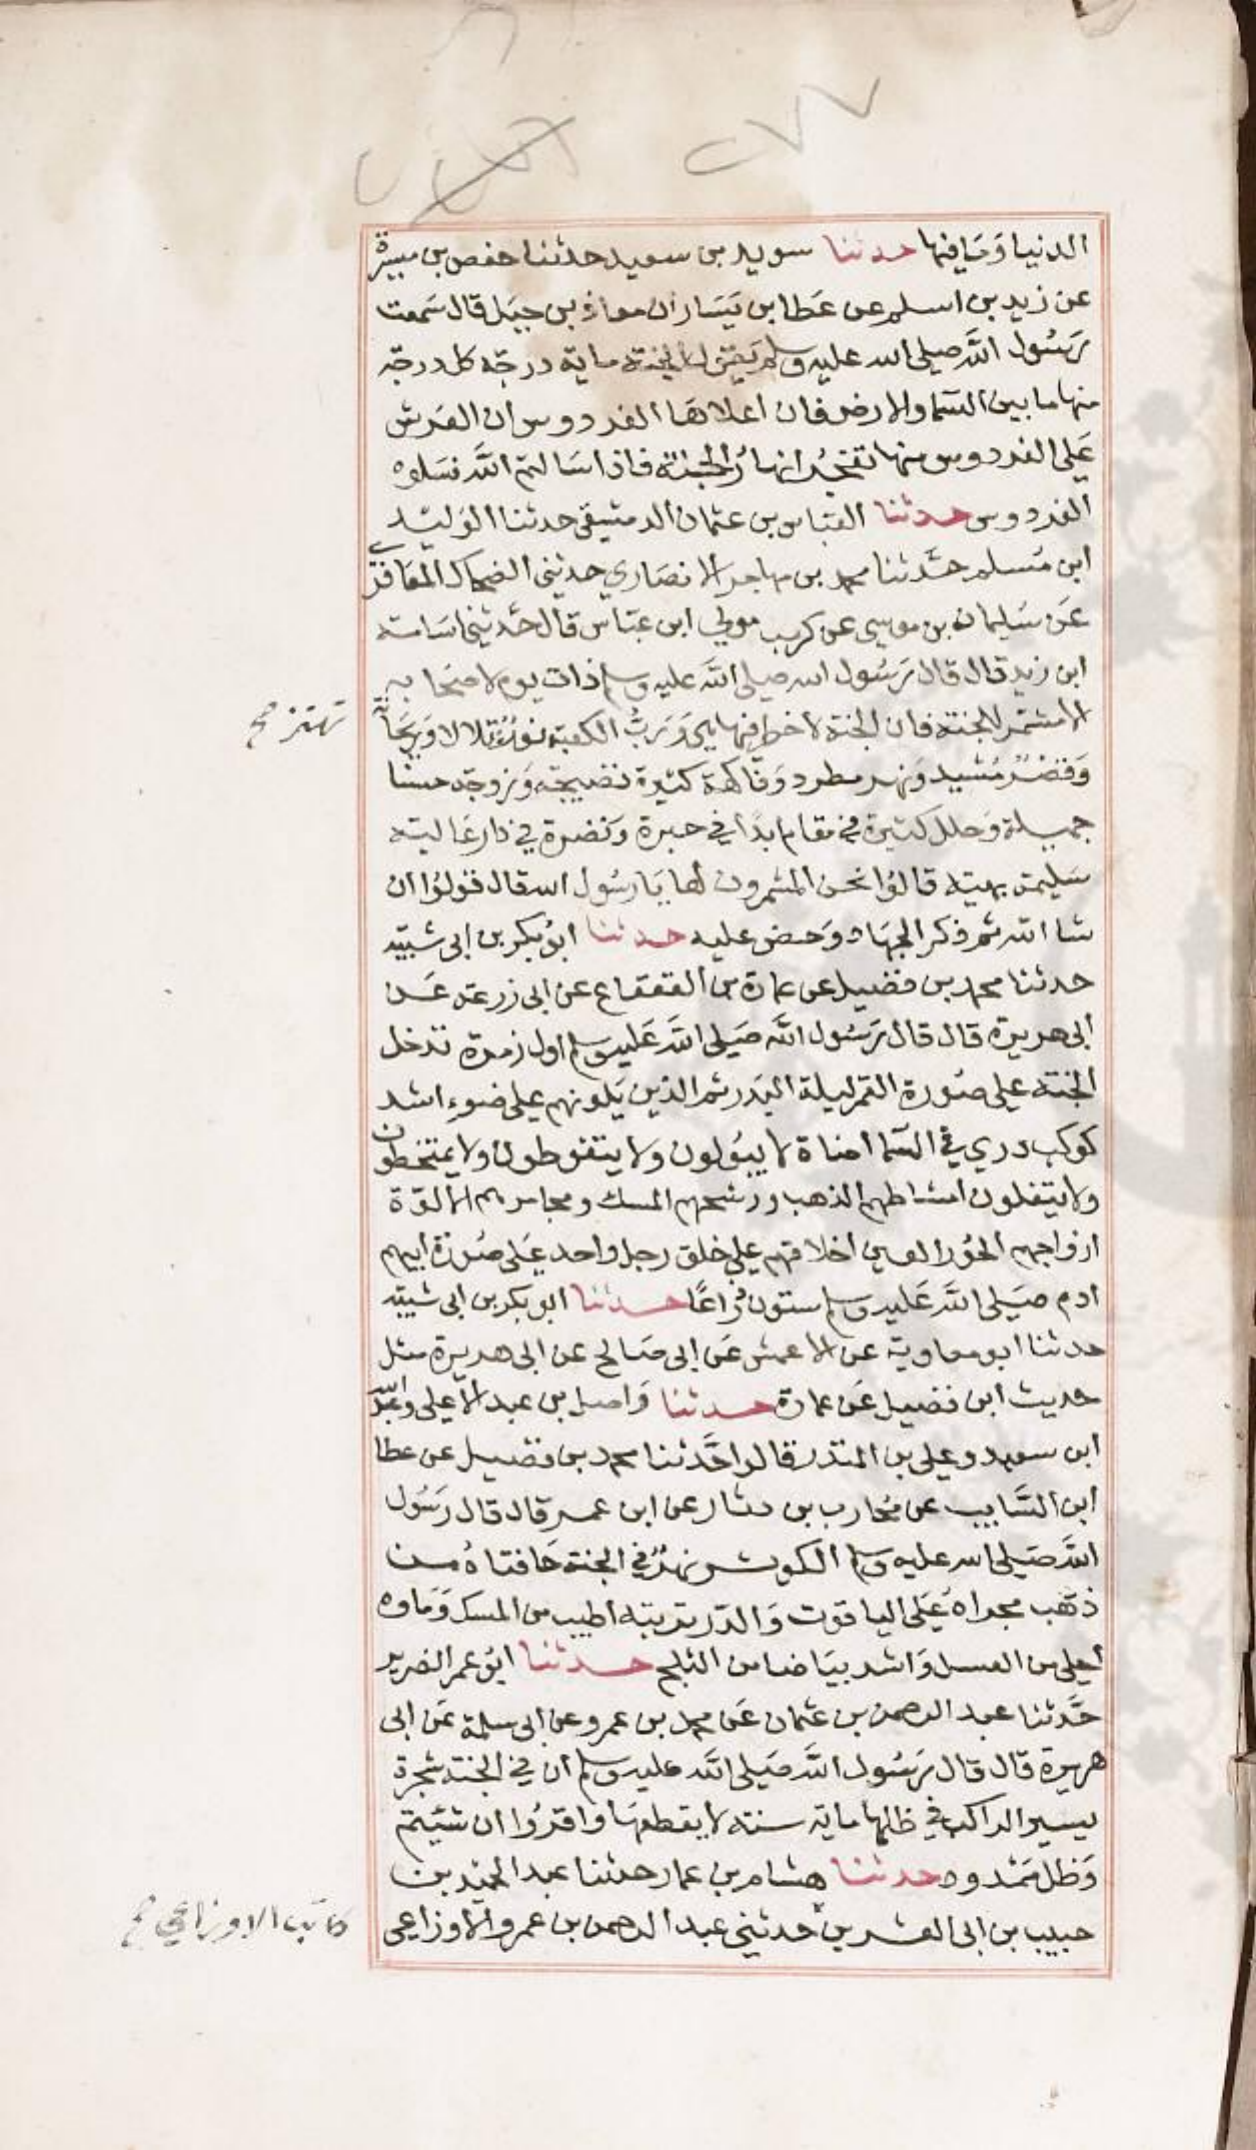 الدنيا وَمَا فيها حدثنا سويد بن سعيد حدثنا حفص بن ميسرة
عن زيد بن اسلم عن عَطا بن يَسَار ان معاذ بن جبَل قال سَمعت
رَسُول اللَّه صلى الله عليه وسلم يَقول الجنة ماية درجَة كل درجَة
منها ما بين السَّما والارض فان اعلاهَا الفردوس وان العَرش
عَلى الفردوس منها تفَجَّرُ انهارُ الجنة فاذا سَالتم اللَّه فسَلوه
الفردوس حدثنا العبَّاس بن عثمان الدمشقي حدثنا الوَليد
ابن مُسلم حدَّثنا محمد بن مهاجر الانصَاري حدثني الضحاك المعَافري
عَن سُليمان بن موسى عن كريب مولى ابن عبَّاس قال حَدثني اسَامَة
ابن زيد قال قال رَسُول الله صلى اللَّه عليه وسلم ذات يوم لاصحَابه
الا مشمّر للجنة فان الجنة لا خطر لها هي وَرَبِّ الكعبَة نورٌ يتلالا وَريحَانة
تهتز صح
وَقصْرٌ مُشيد وَنهر مطرد وَفاكهة كثيرة نضيجَة وَزوجَة حسنا
جميلة وَحلل كثيرة في مقام ابدًا في حبرة وَنضرة في دار عَالية
سَليمة بهية قالوُا نحن المشمرون لها يَا رسُول الله قال قولوُا ان
شا اللَّه ثم ذكر الجهَاد وَحض عليه حدثنا ابوُ بكر بن ابي شيبَة
حدثنا محمد بن فضيل عن عمارة بن القعقاع عن ابي زرعَة عَن
ابي هريرة قال قال رَسُول اللَّه صَلى اللَّه عَليه وسلم اول زمرة تدخل
الجنة على صُورة القمر ليلة البَدر ثم الذين يَلونهم على ضوء اشد
كوكب دري في السَّما اضاة لا يبُولون ولا يتغوطون ولا يمتخطون
ولا يتفلون امشاطهم الذهب ورشحهم المسك ومجامرهم الالوّة
ازواجهم الحُور العين اخلاقهم على خلق رجل واحد عَلى صُورة ابيهم
ادم صَلى اللَّه عَليه وسلم ستون ذراعًا حدثنا ابو بكر بن ابي شيبَة
حدثنا ابو معاوية عن الاعمش عَن ابي صَالح عن ابي هريرة مثل
حديث ابن فضيل عَن عمارة حدثنا وَاصل بن عبد الاعلى وعبد الله
ابن سعيد وعلي بن المنذر قالوا حَدَّثنا محمد بن فضيل عن عطا
ابن السَّايب عن مُحارب بن دثار عن ابن عمر قال قال رَسُول
اللَّه صَلى الله عليه وسلم الكوثر نهرٌ في الجنة حَافتاهُ من
ذهَب مجراهُ عَلى الياقوت وَالدّر تربته اطيب من المسك وَماوه
احلى من العسل وَاشد بيَاضا من الثلج حدثنا ابوُ عمر الضرير
حَدَّثنا عبد الرحمن بن عثمان عَن محمد بن عمرو عن ابي سلمة عَن ابي
هريرة قال قال رَسُول اللَّه صَلى اللَّه عليه وسلم ان في الجنة شجرة
يسير الراكب في ظلها ماية سنة لا يقطعهَا واقرُوا ان شيتم
وَظل مَمْدود حدثنا هشام بن عمار حدثنا عبد الحميد بن
حبيب بن ابي العشرين حدثني عبد الرحمن بن عمرو الاوزاعي
كاتب الاوزاعي صح